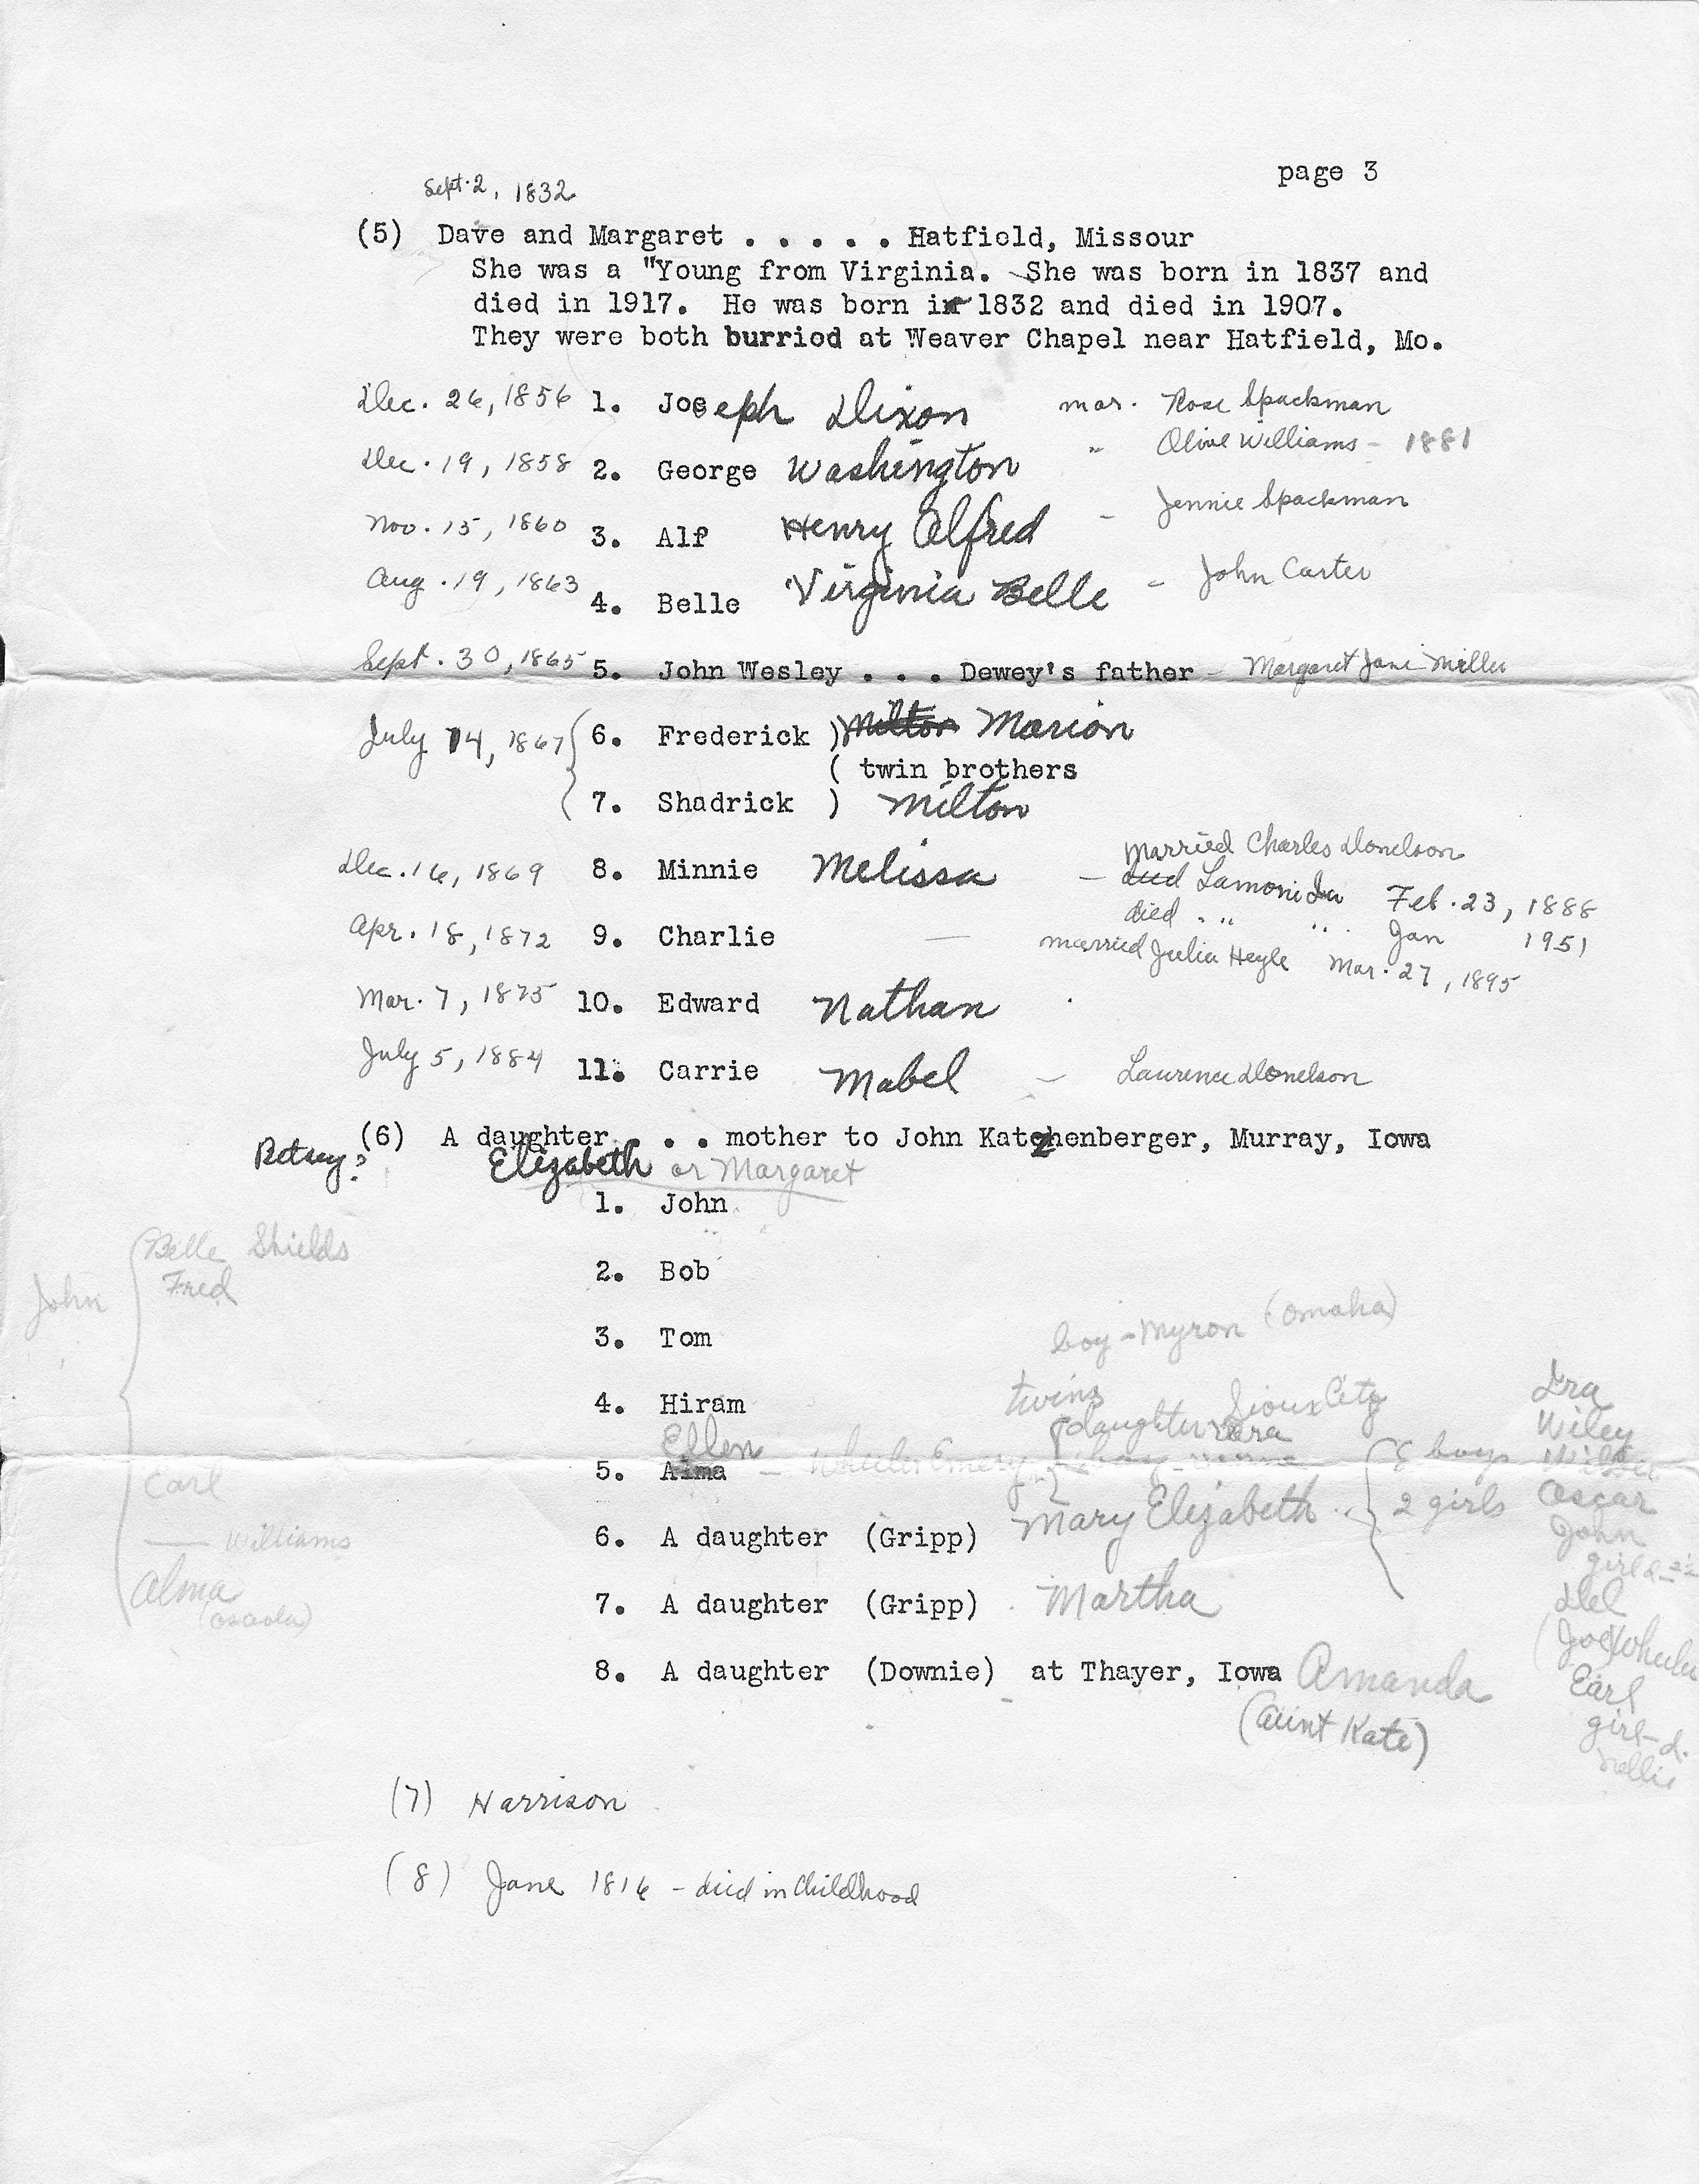 page 3
Sept. 2, 1832
(5) Dave and Margaret . . . . . Hatfield, Missour
She was a "Young from Virginia. She was born in 1837 and
died in 1917. He was born in 1832 and died in 1907.
They were both burriod at Weaver Chapel near Hatfield, Mo.
Dec. 26, 1856 1. Joseph Dixon mar. Rose Spackman
Dec. 19, 1858 2. George Washington " Olive Williams - 1881
Nov. 15, 1860 3. Alf Henry Alfred - Jennie Spackman
Aug. 19, 1863 4. Belle Virginia Belle - John Carter
Sept. 30, 1865 5. John Wesley . . . Dewey's father - Margaret Jane Miller
July 14, 1867 { 6. Frederick ) Milton Marion
( twin brothers
7. Shadrick ) Milton
Dec. 16, 1869 8. Minnie Melissa - married Charles Donelson
died Lamoni Ia Feb. 23, 1888
died " " " Jan 1951
Apr. 18, 1872 9. Charlie — married Julia Heyle Mar. 27, 1895
Mar. 7, 1875 10. Edward Nathan
July 5, 1884 11. Carrie Mabel - Laurence Donelson
Betsy? (6) A daughter . . . mother to John Katzenberger, Murray, Iowa
Elizabeth or Margaret
1. John
John { Belle Shields
Fred
2. Bob
3. Tom
boy - Myron (Omaha)
4. Hiram
twins Sioux City
daughter
Ellen
5. Alma - Wheeler Emery
Carl
— Williams
Alma
(Osceola)
6. A daughter (Gripp) Mary Elizabeth { 8 boys
2 girls
Ira
Wiley
Oscar
John
girl d-
Del
(Joe Wheeler
Earl
girl-d.
Nellie
7. A daughter (Gripp) Martha
8. A daughter (Downie) at Thayer, Iowa Amanda
(Aunt Kate)
(7) Harrison
(8) Jane 1816 - died in childhood